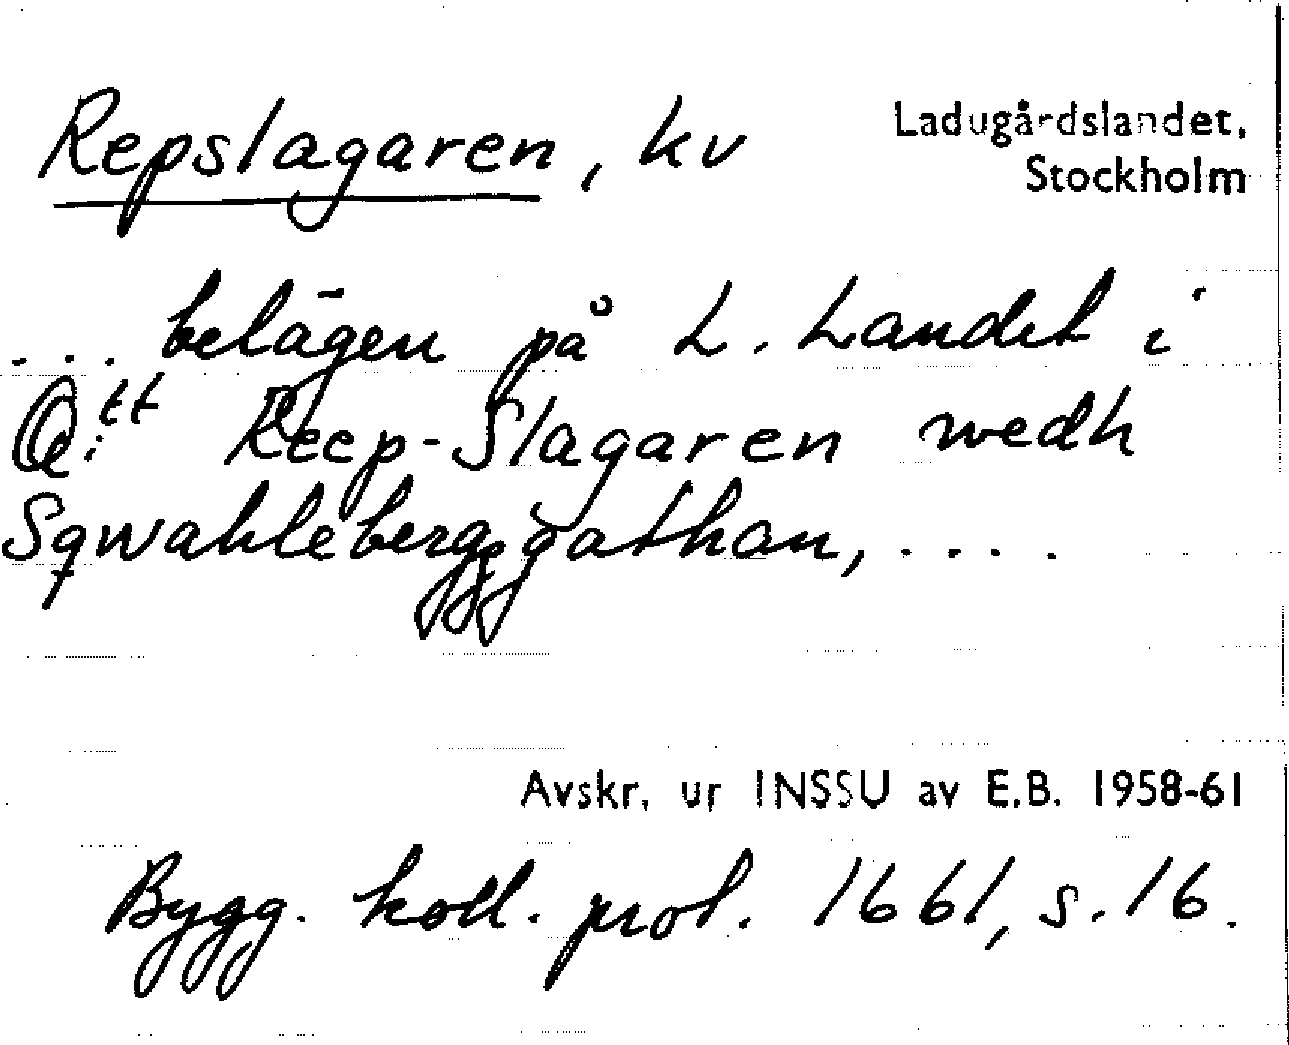 Repslagaren, kv
Ladugårdslandet,
Stockholm
... belägen på L. Landet i
Q:tt Reep-Slagaren wedh
Sqwahlebergzgathan, ....
Avskr. ur INSSU av E.B. 1958-61
Bygg. koll. prot. 1661, s. 16.